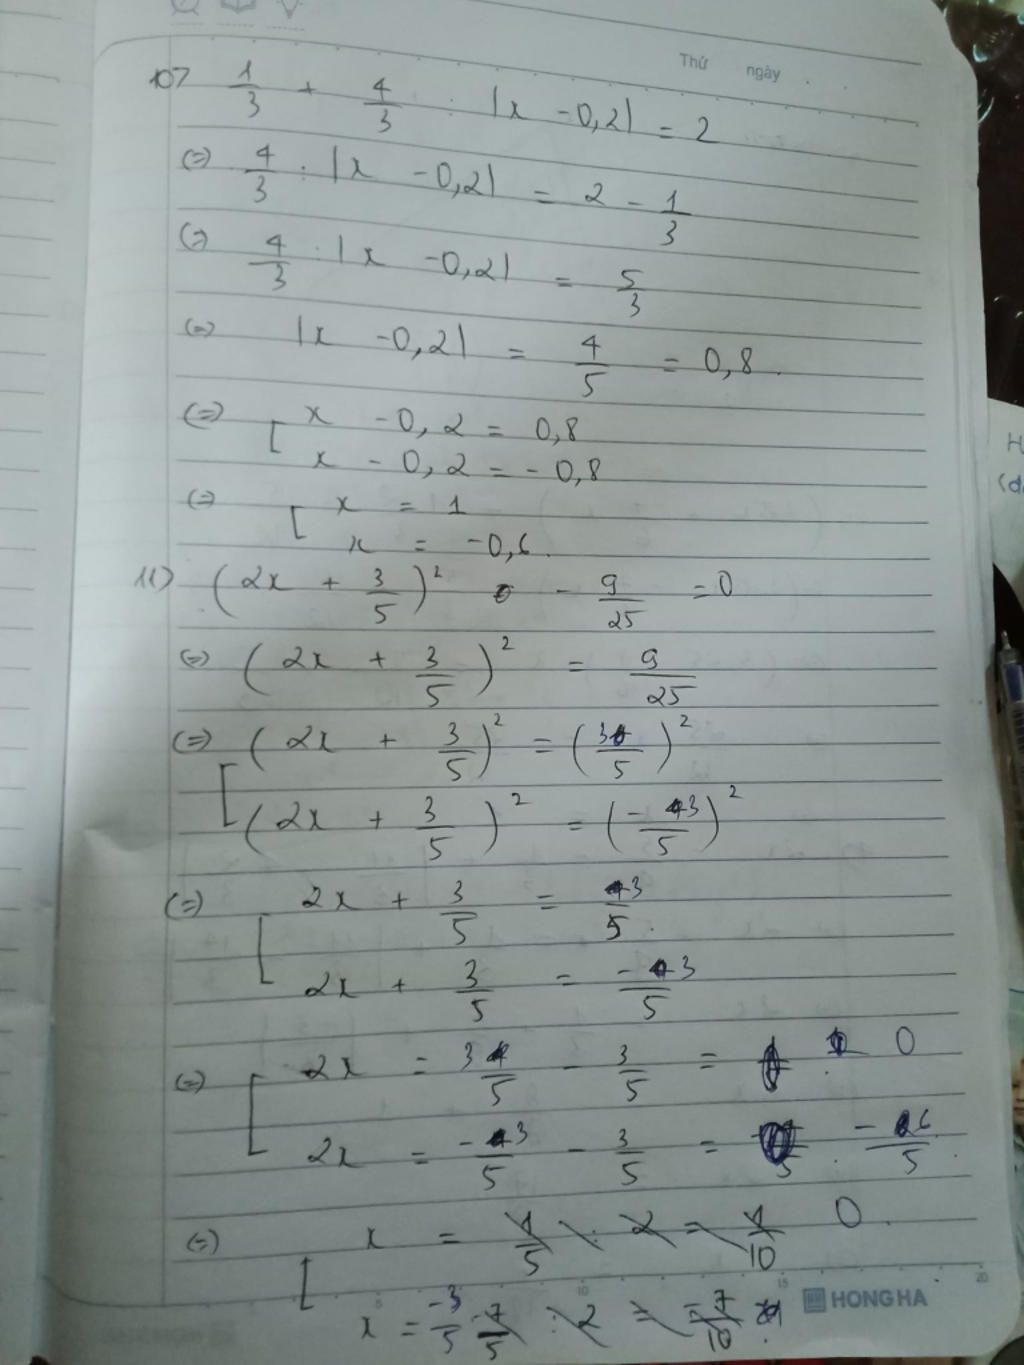 Thứ ngày
10) 1/3 + 4/3 : |x - 0,2| = 2
(=) 4/3 : |x - 0,2| = 2 - 1/3
(=) 4/3 : |x - 0,2| = 5/3
(=) |x - 0,2| = 4/5 = 0,8
(=) [ x - 0,2 = 0,8
x - 0,2 = - 0,8
(=) [ x = 1
x = -0,6
11) (2x + 3/5)² - 9/25 = 0
(=) (2x + 3/5)² = 9/25
(=) [ (2x + 3/5)² = (3/5)²
(2x + 3/5)² = (-3/5)²
(=) [ 2x + 3/5 = 3/5
2x + 3/5 = -3/5
(=) [ 2x = 3/5 - 3/5 = 0
2x = -3/5 - 3/5 = -6/5
(=) [ x = 0
x = -3/5
HONG HA